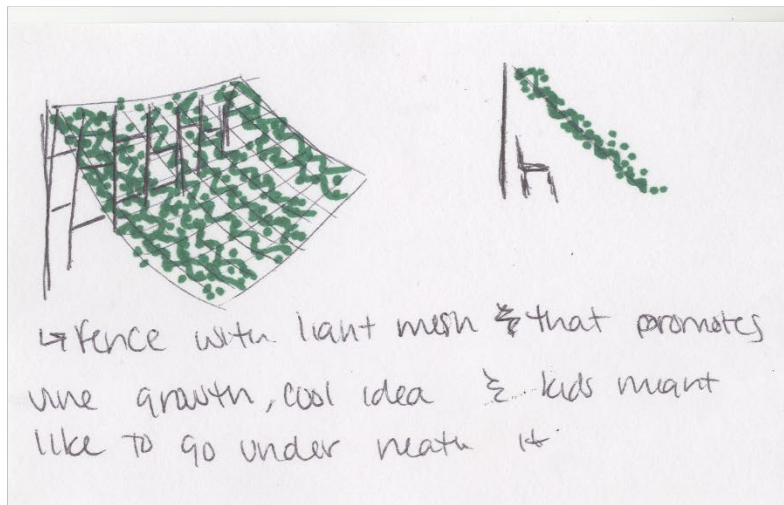 ↳ fence with light mesh & that promotes
vine growth, cool idea & kids might
like to go under neath it